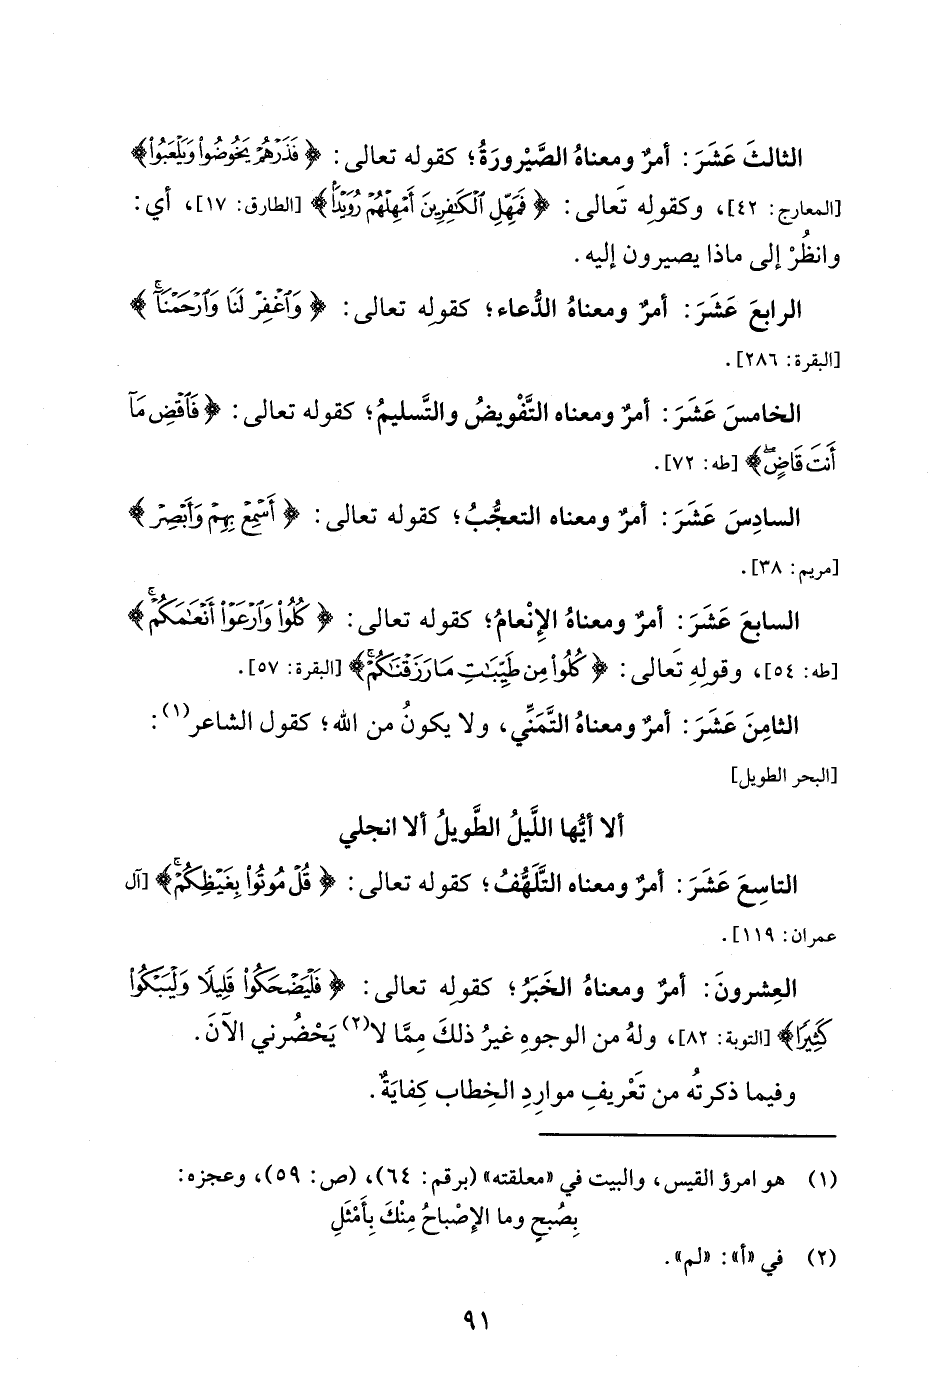 الثالثَ عَشَرَ: أمرٌ ومعناهُ الصَّيْرورَةُ؛ كقوله تعالى: ﴿فَذَرْهُمْ يَخُوضُوا۟ وَيَلْعَبُوا۟﴾
[المعارج: ٤٢]، وكقولِه تَعالى: ﴿فَمَهِّلِ ٱلْكَٰفِرِينَ أَمْهِلْهُمْ رُوَيْدًۢا﴾ [الطارق: ١٧]، أي:
وانظُرْ إلى ماذا يصيرون إليه.
الرابعَ عَشَرَ: أمرٌ ومعناهُ الدُّعاء؛ كقولِه تعالى: ﴿وَٱغْفِرْ لَنَا وَٱرْحَمْنَآ ۚ﴾
[البقرة: ٢٨٦].
الخامسَ عَشَرَ: أمرٌ ومعناه التَّفْويضُ والتَّسليمُ؛ كقوله تعالى: ﴿فَٱقْضِ مَآ
أَنتَ قَاضٍ ۖ﴾ [طه: ٧٢].
السادِسَ عَشَرَ: أمرٌ ومعناه التعجُّبُ؛ كقوله تعالى: ﴿أَسْمِعْ بِهِمْ وَأَبْصِرْ﴾
[مريم: ٣٨].
السابعَ عَشَرَ: أمرٌ ومعناهُ الإنْعامُ؛ كقوله تعالى: ﴿كُلُوا۟ وَٱرْعَوْا۟ أَنْعَٰمَكُمْ ۚ﴾
[طه: ٥٤]، وقولِهِ تَعالى: ﴿كُلُوا۟ مِن طَيِّبَٰتِ مَا رَزَقْنَٰكُمْ ۚ﴾ [البقرة: ٥٧].
الثامِنَ عَشَرَ: أمرٌ ومعناهُ التَّمَنِّي، ولا يكونُ من الله؛ كقول الشاعر(١):
[البحر الطويل]
ألا أيُّها اللَّيلُ الطَّويلُ ألا انجلي
التاسِعَ عَشَرَ: أمرٌ ومعناه التَّلَهُّفُ؛ كقوله تعالى: ﴿قُلْ مُوتُوا۟ بِغَيْظِكُمْ ۗ﴾ [آل
عمران: ١١٩].
العِشرونَ: أمرٌ ومعناهُ الخَبَرُ؛ كقولِه تعالى: ﴿فَلْيَضْحَكُوا۟ قَلِيلًا وَلْيَبْكُوا۟
كَثِيرًا﴾ [التوبة: ٨٢]، ولهُ من الوجوهِ غيرُ ذلكَ مِمَّا لا(٢) يَحْضُرني الآنَ.
وفيما ذكرتُه من تَعْريفِ موارِدِ الخِطاب كِفايَةٌ.
(١) هو امرؤ القيس، والبيت في «معلقته» (برقم: ٦٤)، (ص: ٥٩)، وعجزه:
بِصُبحٍ وما الإصْباحُ مِنْكَ بِأَمْثَلِ
(٢) في «أ»: «لم».
٩١